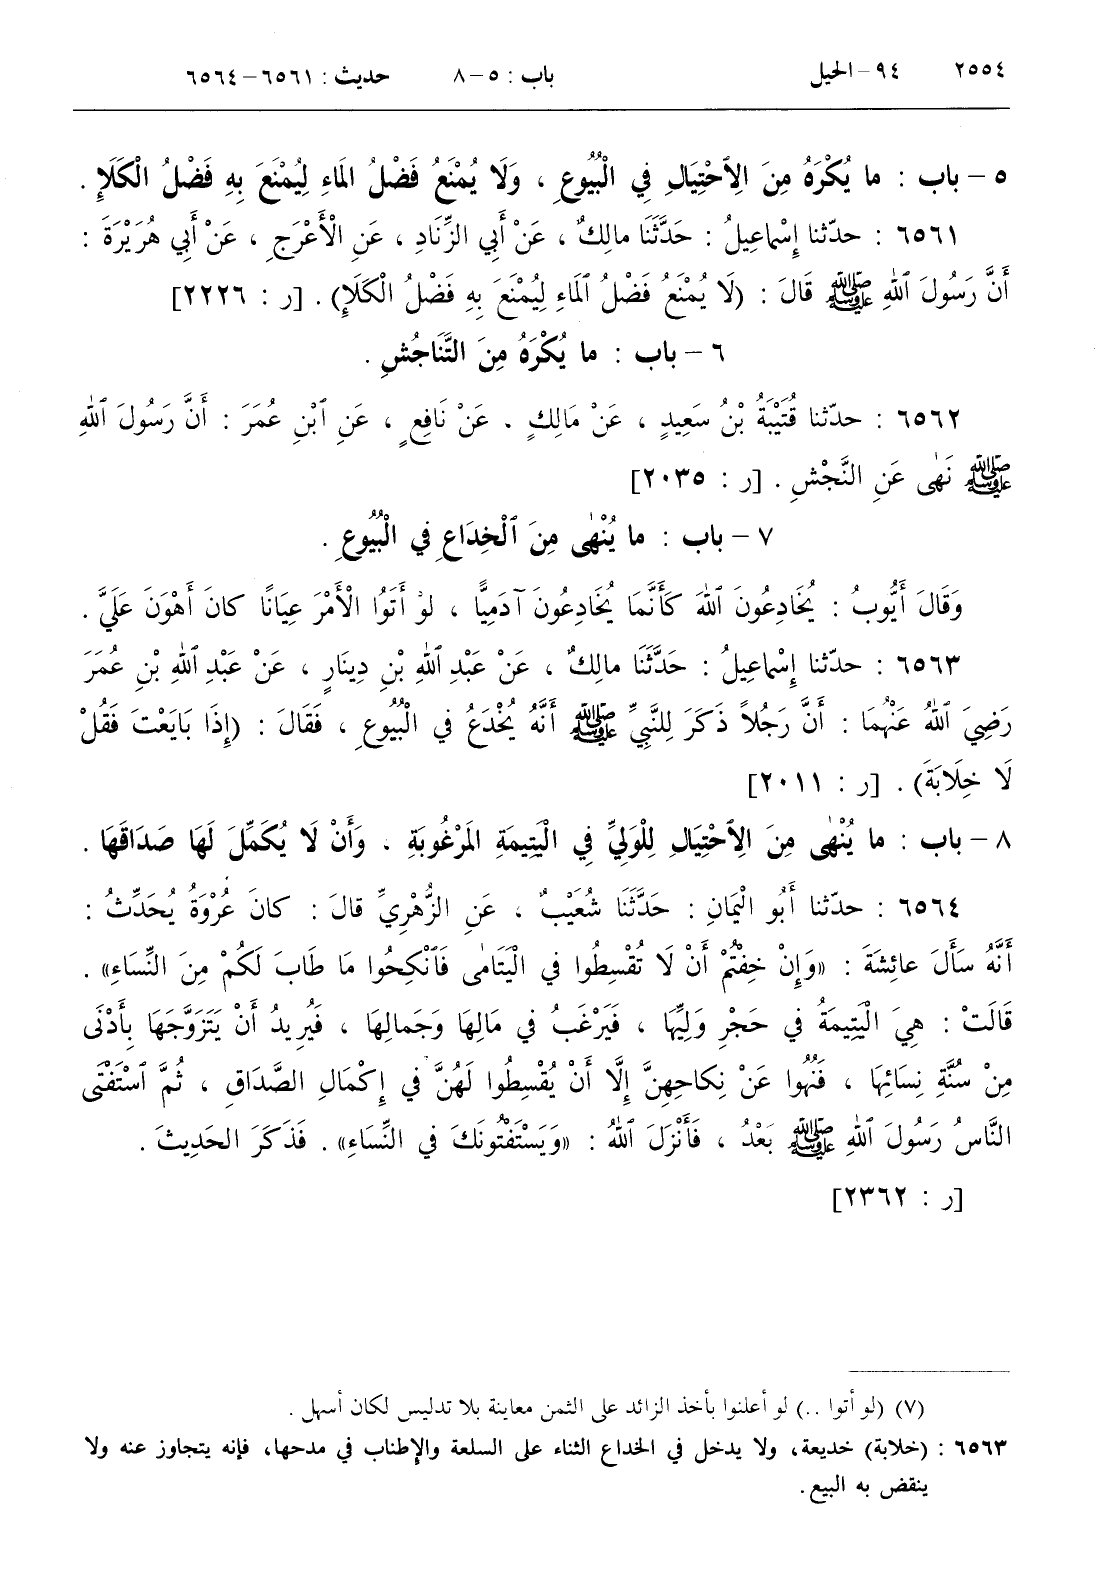 ٢٥٥٤ ٩٤ - الحيل باب : ٥ - ٨ حديث : ٦٥٦١ - ٦٥٦٤
٥ - باب : ما يُكْرَهُ مِنَ الِاحْتِيَالِ فِي الْبُيُوعِ ، وَلَا يُمْنَعُ فَضْلُ المَاءِ لِيُمْنَعَ بِهِ فَضْلُ الْكَلَإِ .
٦٥٦١ : حدّثنا إِسْمَاعِيلُ : حَدَّثَنَا مالِكٌ ، عَنْ أَبِي الزِّنَادِ ، عَنِ الْأَعْرَجِ ، عَنْ أَبِي هُرَيْرَةَ :
أَنَّ رَسُولَ ٱللهِ ﷺ قَالَ : (لَا يُمْنَعُ فَضْلُ ٱلمَاءِ لِيُمْنَعَ بِهِ فَضْلُ الْكَلَإِ) . [ر : ٢٢٢٦]
٦ - باب : ما يُكْرَهُ مِنَ التَّنَاجُشِ .
٦٥٦٢ : حدّثنا قُتَيْبَةُ بْنُ سَعِيدٍ ، عَنْ مَالِكٍ . عَنْ نَافِعٍ ، عَنِ ٱبْنِ عُمَرَ : أَنَّ رَسُولَ ٱللهِ
ﷺ نَهٰى عَنِ النَّجْشِ . [ر : ٢٠٣٥]
٧ - باب : ما يُنْهٰى مِنَ ٱلْخِدَاعِ فِي الْبُيُوعِ .
وَقَالَ أَيُّوبُ : يُخَادِعُونَ ٱللهَ كَأَنَّمَا يُخَادِعُونَ آدَمِيًّا ، لَوْ أَتَوُا الْأَمْرَ عِيَانًا كانَ أَهْوَنَ عَلَيَّ .
٦٥٦٣ : حدّثنا إِسْمَاعِيلُ : حَدَّثَنَا مالِكٌ ، عَنْ عَبْدِ ٱللهِ بْنِ دِينَارٍ ، عَنْ عَبْدِ ٱللهِ بْنِ عُمَرَ
رَضِيَ ٱللهُ عَنْهُمَا : أَنَّ رَجُلاً ذَكَرَ لِلنَّبِيِّ ﷺ أَنَّهُ يُخْدَعُ فِي الْبُيُوعِ ، فَقَالَ : (إِذَا بَايَعْتَ فَقُلْ
لَا خِلَابَةَ) . [ر : ٢٠١١]
٨ - باب : ما يُنْهٰى مِنَ الِاحْتِيَالِ لِلْوَلِيِّ فِي الْيَتِيمَةِ المَرْغُوبَةِ ، وَأَنْ لَا يُكَمِّلَ لَهَا صَدَاقَهَا .
٦٥٦٤ : حدّثنا أَبُو الْيَمَانِ : حَدَّثَنَا شُعَيْبٌ ، عَنِ الزُّهْرِيِّ قالَ : كانَ عُرْوَةُ يُحَدِّثُ :
أَنَّهُ سَأَلَ عائِشَةَ : «وَإِنْ خِفْتُمْ أَنْ لَا تُقْسِطُوا فِي الْيَتَامٰى فَٱنْكِحُوا مَا طَابَ لَكُمْ مِنَ النِّسَاءِ» .
قَالَتْ : هِيَ الْيَتِيمَةُ فِي حَجْرِ وَلِيِّهَا ، فَيَرْغَبُ فِي مَالِهَا وَجَمالِهَا ، فَيُرِيدُ أَنْ يَتَزَوَّجَهَا بِأَدْنَى
مِنْ سُنَّةِ نِسَائِهَا ، فَنُهُوا عَنْ نِكاحِهِنَّ إِلَّا أَنْ يُقْسِطُوا لَهُنَّ فِي إِكْمَالِ الصَّدَاقِ ، ثُمَّ ٱسْتَفْتَى
النَّاسُ رَسُولَ ٱللهِ ﷺ بَعْدُ ، فَأَنْزَلَ ٱللهُ : «وَيَسْتَفْتُونَكَ فِي النِّسَاءِ» . فَذَكَرَ الحَدِيثَ .
[ر : ٢٣٦٢]
(٧) (لو أتوا ..) لو أعلنوا بأخذ الزائد على الثمن معاينة بلا تدليس لكان أسهل .
٦٥٦٣ : (خلابة) خديعة، ولا يدخل في الخداع الثناء على السلعة والإطناب في مدحها، فإنه يتجاوز عنه ولا
ينقض به البيع .